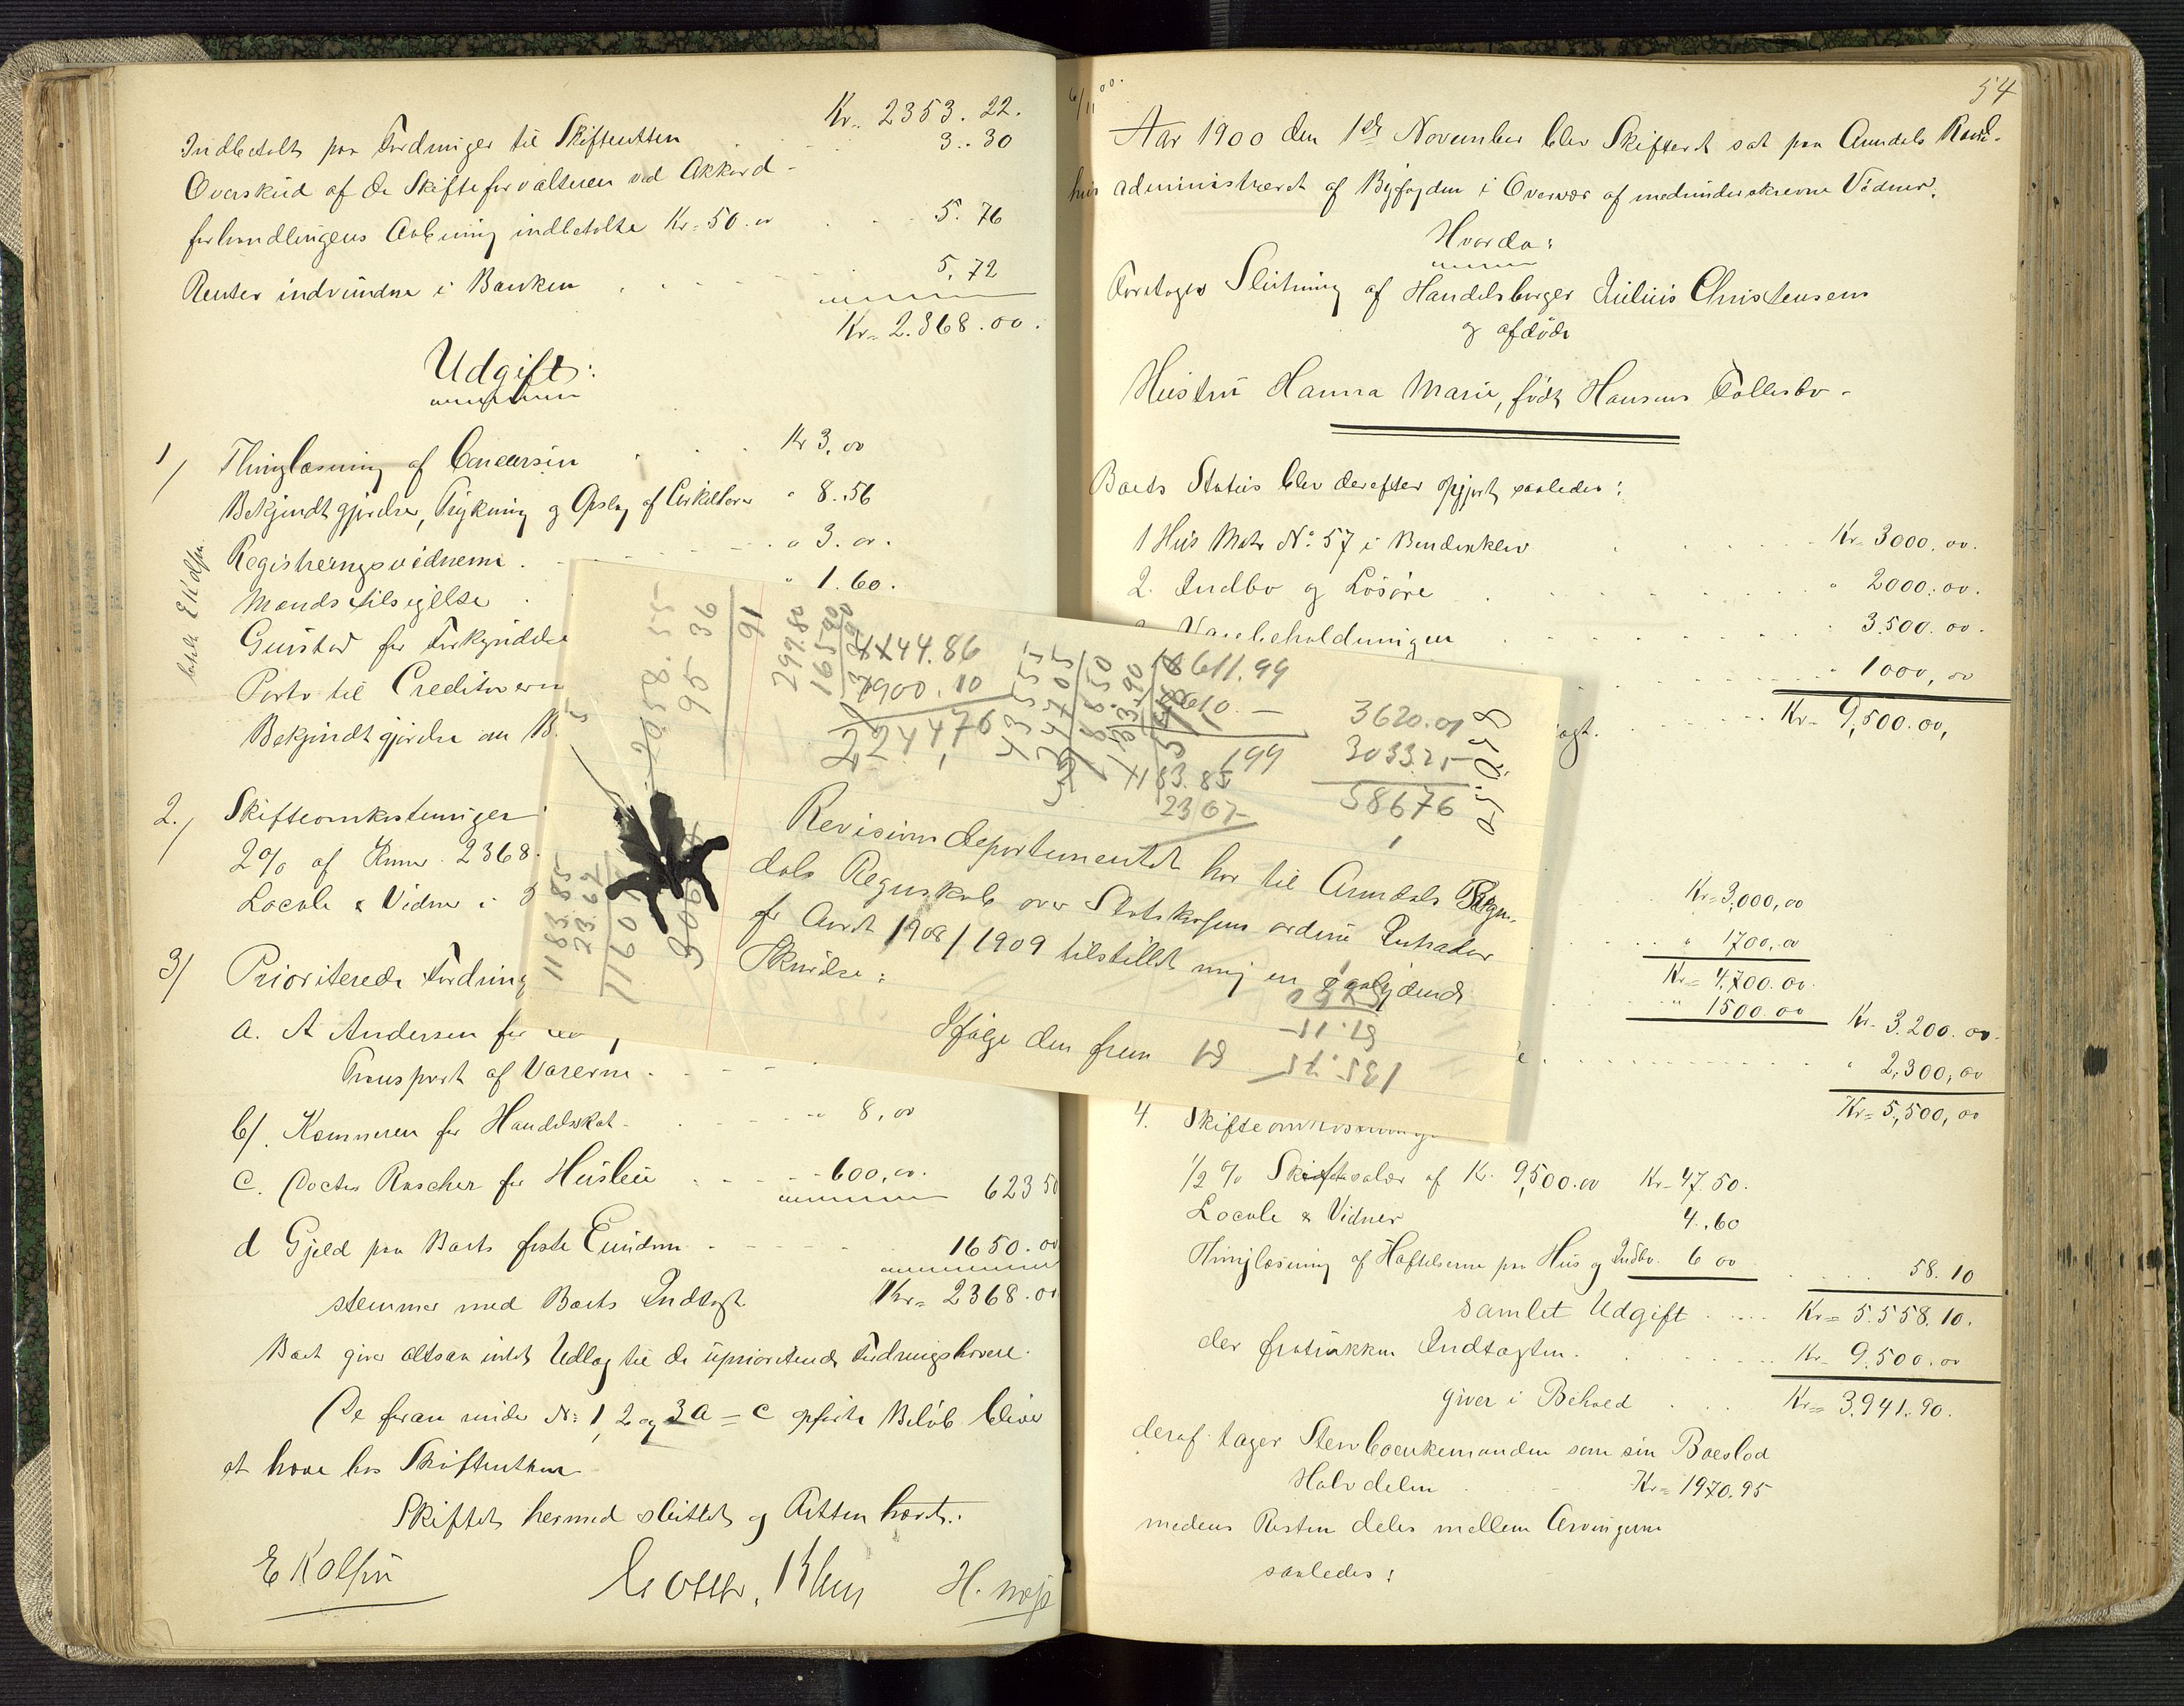 Kr. 2353. 22.
Indbetalt paa Fordringer til Skifteretten 3.. 30
Overskud af de Skifteforvalteren ved Akkord-
forhandlingens Aabning indbetalte Kr. 50. 00 5. 76
Renter indvundne i Banken 5. 72
Kr. 2.368. 00.
Udgift:
1/ Thinglæsning af Concursen Kr 3, 00
Bekjendtgjørelse, Trykning og Opslag af Cirkulærer " 8.56
Registreringsvidnerne " 3. 00.
Mændstilsigelse " 1. 60.
Porto til Creditorerne
Bekjendtgjørelse om B.
2./ Skifteomkostninger
2% af Kroner 2368.
Locale & Vidner i 3
3/ Prioriterede Fordring
a. A Andersen for
Transport af Varerne
b/. Kæmneren for Handelsskat 8, 00
c. Doctor Roscher for Husleie 600, 00. 623 50
d Gjæld paa Boets faste Eiendom 1650. 00
stemmer med Boets Indtægt Kr. 2368. 00
Boet giver altsaa intet Udlæg til de uprioriterede Fordringshavere.
De foran under No 1, 2 og 3a - c opførte Beløb bliver
at hæve hos Skifteretten
Skiftet hermed sluttet og Retten hævet.
E Kolsin
betalt E Kolsin
3744.86
1900. 10
224476
6611.99
6610. —
199
3620.01
3033.25
58676
2058. 55
95 36
91
299.80
1183.85
2367
1183.85
23.67
11601
Revisionsdepartementet har til Arendals Bygn-
dals Regnskab over Statskassens ordin Intrader
for Aaret 1908/1909 tilstillet mig en saalydende
Skrivelse:
Ifølge den frem
51.11-
135.75
54
6/11 00.
Aar 1900 den 1ste November blev Skifteret sat paa Arendals Raad-
hus administreret af Byfogden i Overvær af medunderskrevne Vidner.
Hvorda:
Foretoges Slutning af Handelsborger Julius Christensens
og afdøde
Hustru Hanna Marie, født Hansens Fællesbo -
Boets Status blev derefter opgjort saaledes:
1 Hus Matr No. 57 i Bendiksklev Kr. 3000. 00.
2. Indbo og Løsøre " 2000. 00.
Varebeholdningen 3.500. 00.
" 1000, 00
ægt. Kr. 9,500.00,
Kr. 3,000, 00
" 1700, 00
Kr. 4,700. 00.
" 1500. 00 Kr. 3.200. 00.
" 2,300, 00
Kr. 5,500, 00
4. Skifteomkostninge
1/2 % Skiftesalær af K. 9,500.00 Kr. 47.50.
Locale & Vidner 4. 60
Thinglæsning af Hæftelserne paa Hus og Indbo. 6 00 58. 10
samlet Udgift Kr. 5.558. 10.
der fratrukken Indtægten. Kr. 9.500. 00
giver i Behold Kr. 3.941. 90.
deraf tager Stervboenkemanden som sin Boeslod
Halvdelen Kr. 1970.95
medens Resten deles mellem Arvingerne
saaledes: